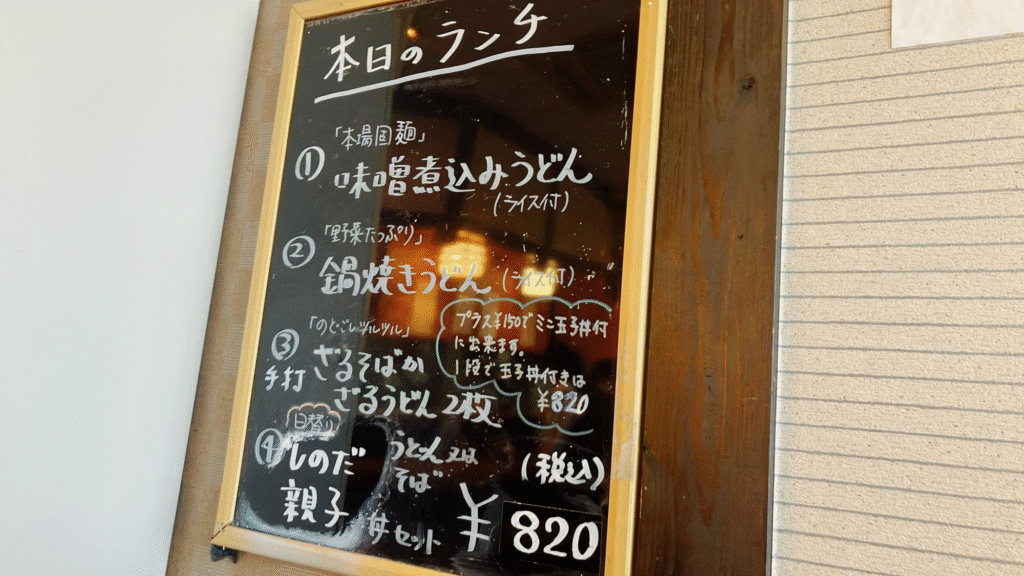 本日のランチ
「本場固麺」
① 味噌煮込みうどん
(ライス付)
「野菜たっぷり」
② 鍋焼きうどん (ライス付)
「のどごしツルツル」
③ 手打 ざるそばか
ざるうどん 2枚
プラス¥150でミニ玉子丼付
に出来ます。
1段で玉子丼付きは
¥820
日替り
④ しのだ うどん又は
そば
親子丼セット
(税込)
¥820